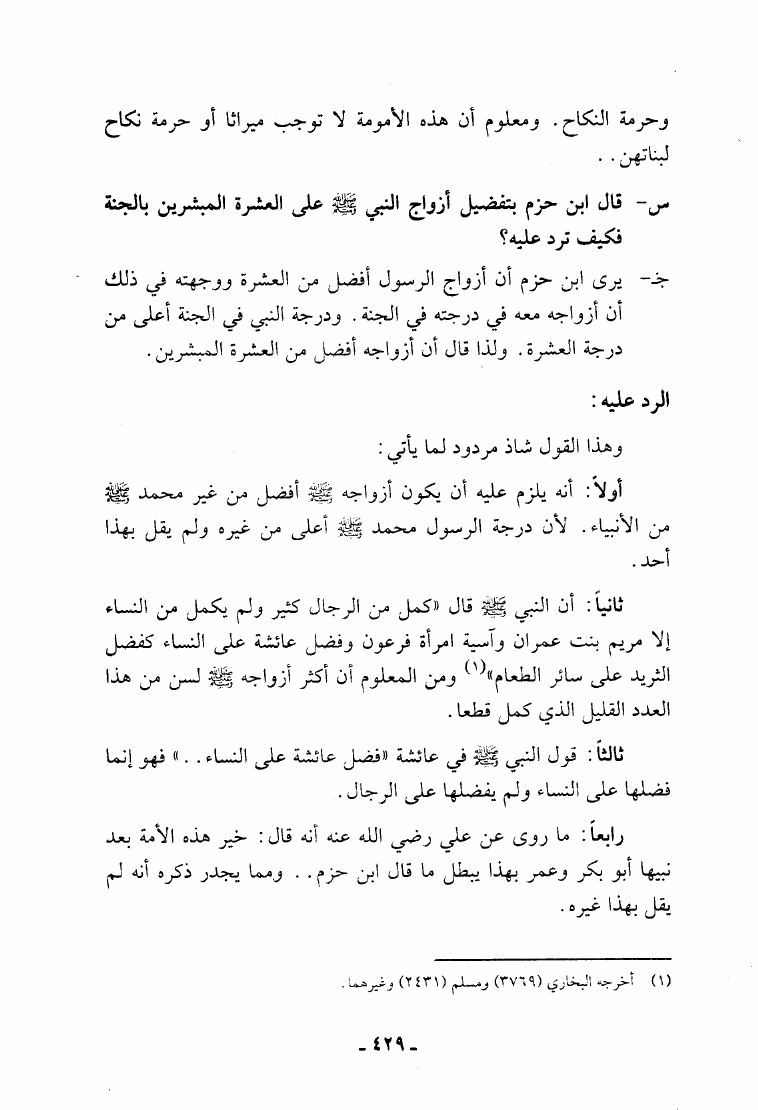 وحرمة النكاح. ومعلوم أن هذه الأمومة لا توجب ميراثا أو حرمة نكاح
لبناتهن. .
س- قال ابن حزم بتفضيل أزواج النبي ﷺ على العشرة المبشرين بالجنة
فكيف ترد عليه؟
جـ- يرى ابن حزم أن أزواج الرسول أفضل من العشرة ووجهته في ذلك
أن أزواجه معه في درجته في الجنة. ودرجة النبي في الجنة أعلى من
درجة العشرة. ولذا قال أن أزواجه أفضل من العشرة المبشرين.
الرد عليه:
وهذا القول شاذ مردود لما يأتي:
أولاً: أنه يلزم عليه أن يكون أزواجه ﷺ أفضل من غير محمد ﷺ
من الأنبياء. لأن درجة الرسول محمد ﷺ أعلى من غيره ولم يقل بهذا
أحد.
ثانياً: أن النبي ﷺ قال «كمل من الرجال كثير ولم يكمل من النساء
إلا مريم بنت عمران وآسية امرأة فرعون وفضل عائشة على النساء كفضل
الثريد على سائر الطعام»(١) ومن المعلوم أن أكثر أزواجه ﷺ لسن من هذا
العدد القليل الذي كمل قطعا.
ثالثاً: قول النبي ﷺ في عائشة «فضل عائشة على النساء. .» فهو إنما
فضلها على النساء ولم يفضلها على الرجال.
رابعاً: ما روى عن علي رضي الله عنه أنه قال: خير هذه الأمة بعد
نبيها أبو بكر وعمر بهذا يبطل ما قال ابن حزم. . ومما يجدر ذكره أنه لم
يقل بهذا غيره.
(١) أخرجه البخاري (٣٧٦٩) ومسلم (٢٤٣١) وغيرهما.
ـ ٤٢٩ ـ